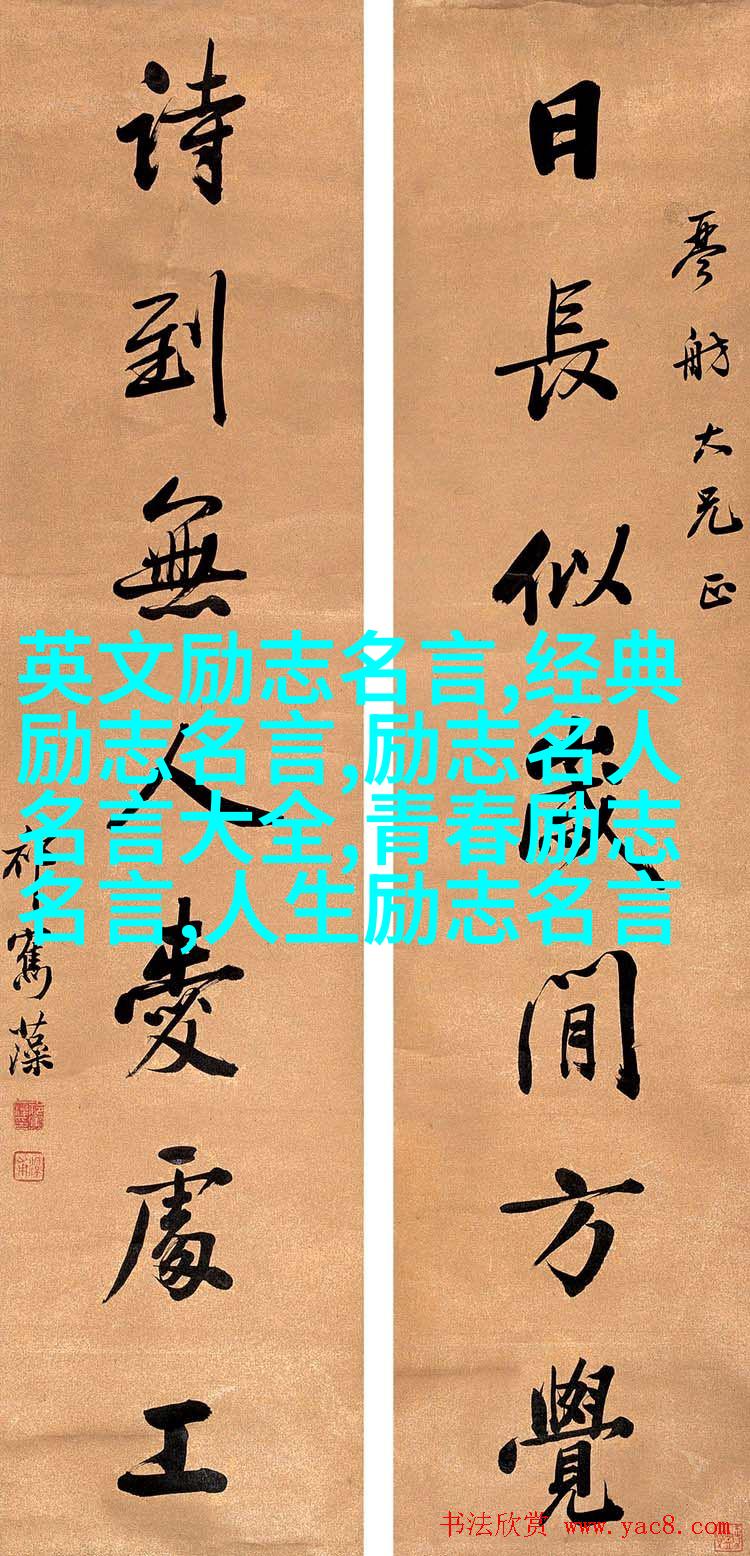 日長似歲閒方覺
琴舫大兄正
詩到無人愛處工
祁寯藻
英文励志名言,经典
励志名言,励志名人
名言大全,青春励志
名言,人生励志名言
书法欣赏 www.yac8.com